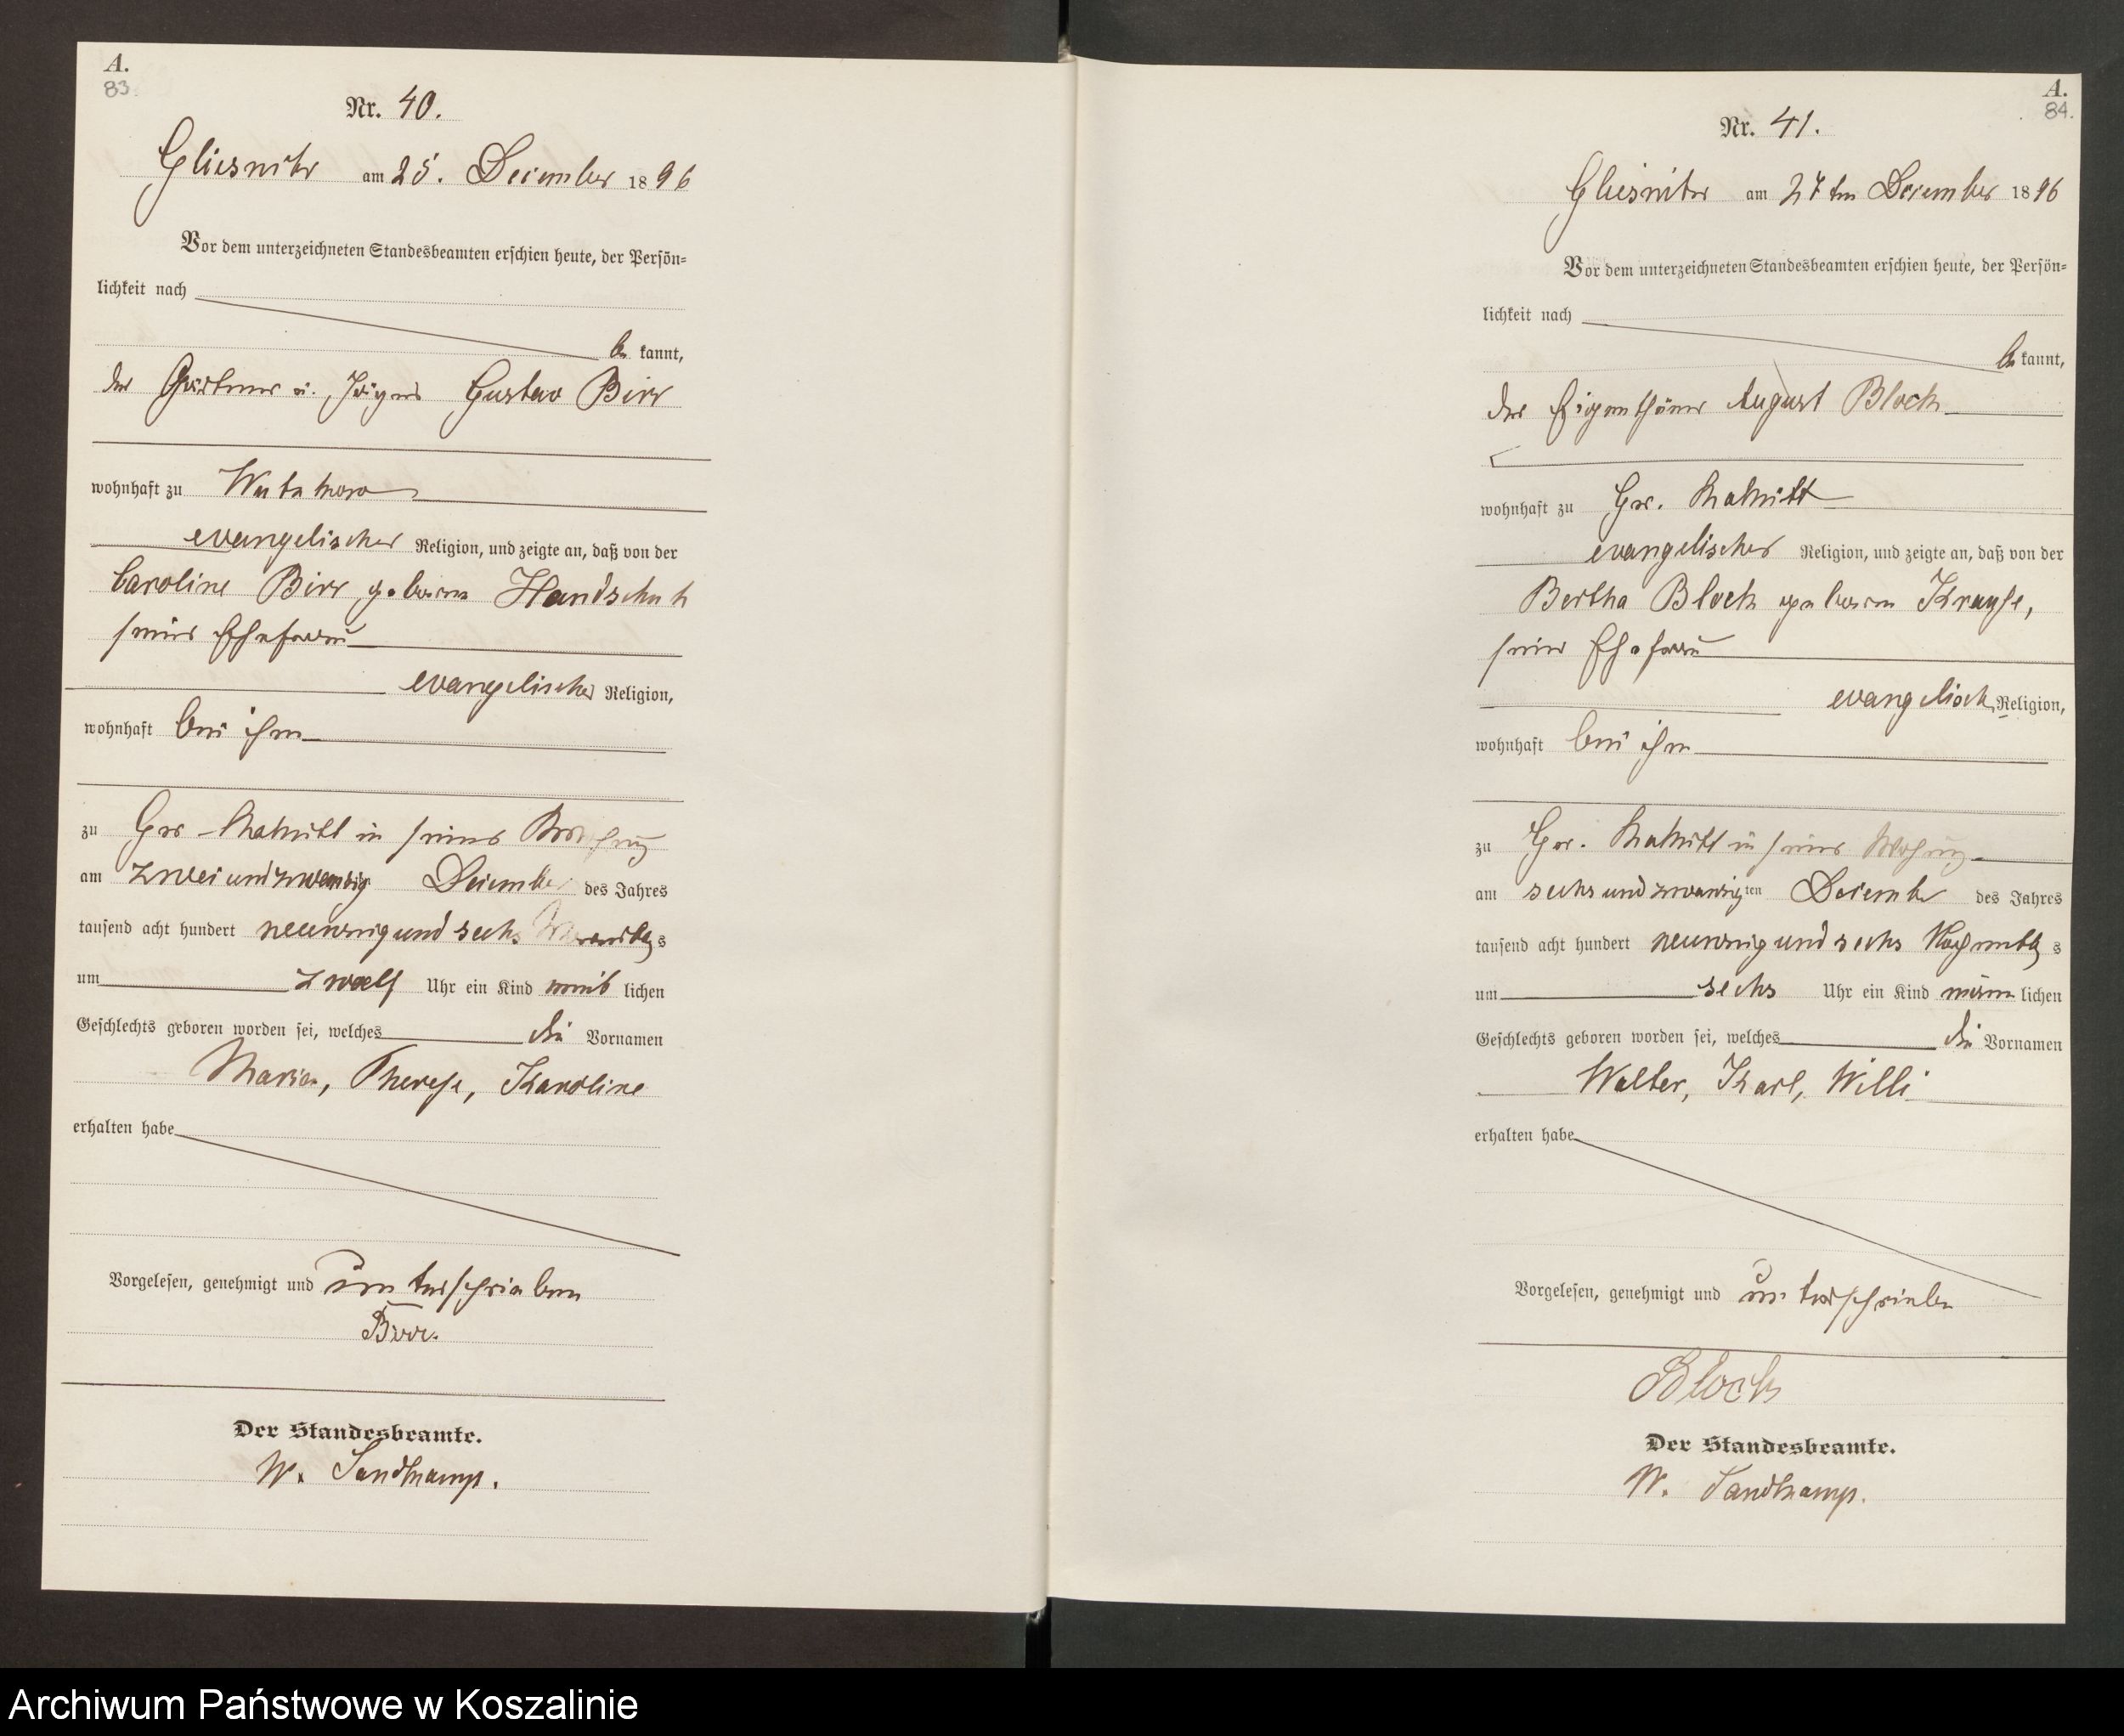 A.
83
Nr. 40.
Gliesnitz am 25. December 1896
Vor dem unterzeichneten Standesbeamten erschien heute, der Persön=
lichkeit nach
be kannt,
der Gärtner u. Jäger Gustav Birr
wohnhaft zu
evangelischer Religion, und zeigte an, daß von der
Caroline Birr geboren Handschuh
seiner Ehefrau
evangelischer Religion,
wohnhaft bei ihm
zu Gr. Machmin in seiner Wohnung
am zweiundzwanzig December des Jahres
tausend acht hundert neunzig und sechs s
um zwoelf Uhr ein Kind weib lichen
Geschlechts geboren worden sei, welches die Vornamen
Maria, Therese, Karoline
erhalten habe
Vorgelesen, genehmigt und unterschrieben
Birr.
Der Standesbeamte.
W. Sandkamp.
A.
84.
Nr. 41.
Gliesnitz am 27ten December 1896
Vor dem unterzeichneten Standesbeamten erschien heute, der Persön=
lichkeit nach
be kannt,
der Eigenthümer August Block
wohnhaft zu Gr.
evangelischer Religion, und zeigte an, daß von der
Bertha Block geboren Krause,
seiner Ehefrau
evangelisch Religion,
wohnhaft bei ihm
zu Gr. in seiner Wohnung
am sechsundzwanzigten December des Jahres
tausend acht hundert neunzig und sechs Nachmittag s
um sechs Uhr ein Kind männ lichen
Geschlechts geboren worden sei, welches die Vornamen
Walter, Karl, Willi
erhalten habe
Vorgelesen, genehmigt und unterschrieben
Block
Der Standesbeamte.
W. Sandkamp.
Archiwum Państwowe w Koszalinie